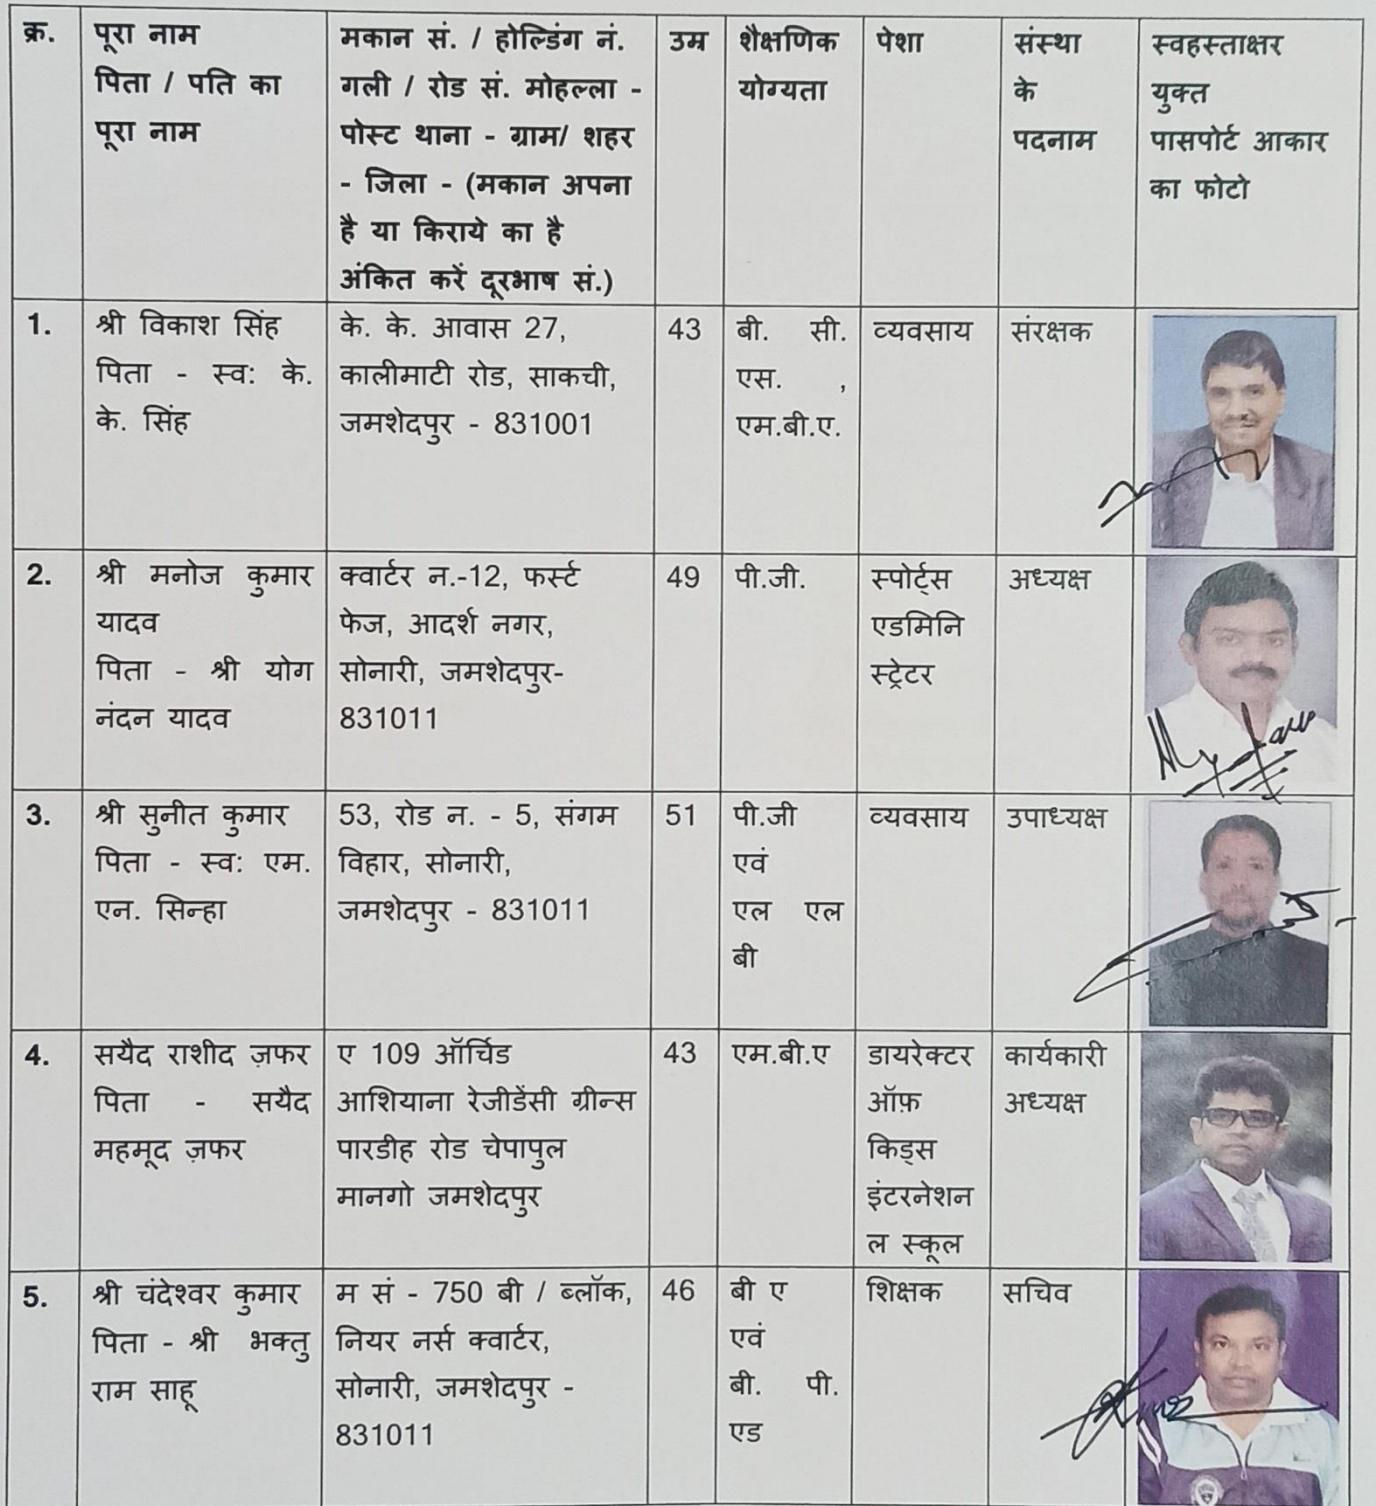 क्र.
पूरा नाम
पिता / पति का
पूरा नाम
मकान सं. / होल्डिंग नं.
गली / रोड सं. मोहल्ला -
पोस्ट थाना - ग्राम/ शहर
- जिला - (मकान अपना
है या किराये का है
अंकित करें दूरभाष सं.)
उम्र
शैक्षणिक
योग्यता
पेशा
संस्था
के
पदनाम
स्वहस्ताक्षर
युक्त
पासपोर्ट आकार
का फोटो
1.
श्री विकाश सिंह
पिता - स्व: के.
के. सिंह
के. के. आवास 27,
कालीमाटी रोड, साकची,
जमशेदपुर - 831001
43
बी. सी.
एस. ,
एम.बी.ए.
व्यवसाय
संरक्षक
2.
श्री मनोज कुमार
यादव
पिता - श्री योग
नंदन यादव
क्वार्टर न.-12, फर्स्ट
फेज, आदर्श नगर,
सोनारी, जमशेदपुर-
831011
49
पी.जी.
स्पोर्ट्स
एडमिनि
स्ट्रेटर
अध्यक्ष
3.
श्री सुनीत कुमार
पिता - स्व: एम.
एन. सिन्हा
53, रोड न. - 5, संगम
विहार, सोनारी,
जमशेदपुर - 831011
51
पी.जी
एवं
एल एल
बी
व्यवसाय
उपाध्यक्ष
4.
सयैद राशीद ज़फर
पिता - सयैद
महमूद ज़फर
ए 109 ऑर्चिड
आशियाना रेजीडेंसी ग्रीन्स
पारडीह रोड चेपापुल
मानगो जमशेदपुर
43
एम.बी.ए
डायरेक्टर
ऑफ़
किड्स
इंटरनेशन
ल स्कूल
कार्यकारी
अध्यक्ष
5.
श्री चंदेश्वर कुमार
पिता - श्री भक्तु
राम साहू
म सं - 750 बी / ब्लॉक,
नियर नर्स क्वार्टर,
सोनारी, जमशेदपुर -
831011
46
बी ए
एवं
बी. पी.
एड
शिक्षक
सचिव